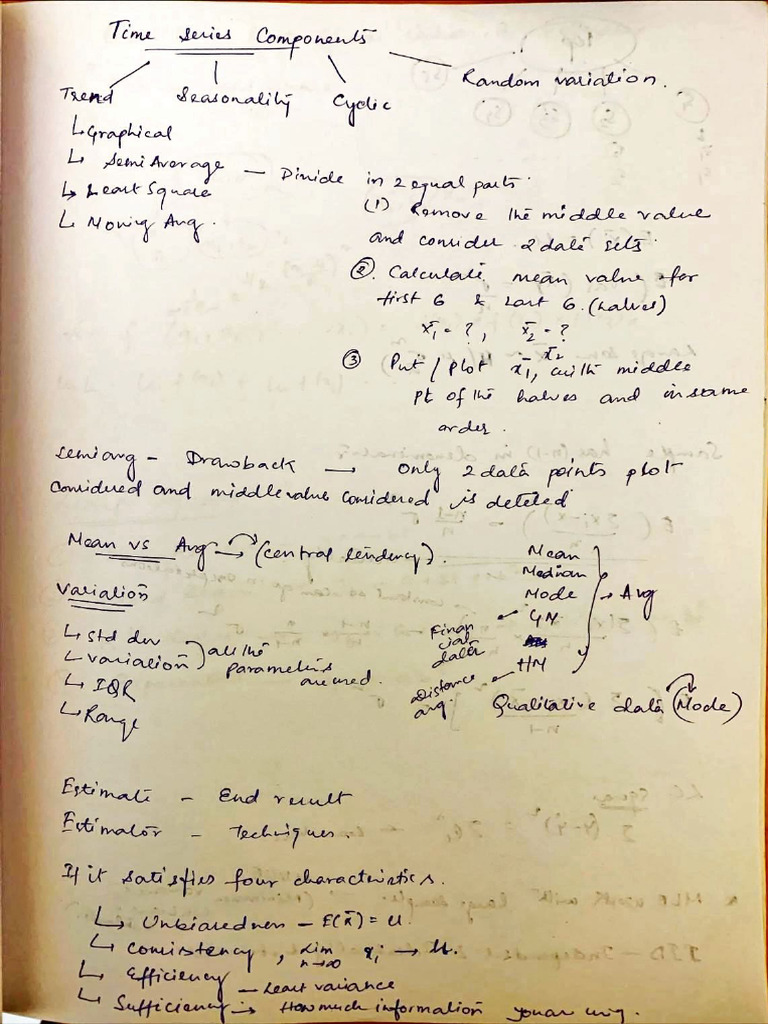 Time series Components
Trend Seasonality Cyclic Random variation.
↳ Graphical
↳ Semi Average — Divide in 2 equal parts.
↳ Least Square
↳ Moving Avg.
(1) Remove the middle value
and consider 2 data sets.
② Calculate mean value for
first 6 & last 6. (halves)
x̄₁ = ?, x̄₂ = ?
③ Put / plot x̄₁, x̄₂ with middle
pt of the halves and in same
order.
semiavg - Drawback → only 2 data points plot
considered and middle value considered is deleted
Mean vs Avg → (central tendency).
Mean
Median
Mode → Avg
GM
Financial data
HM
Distance avg.
Qualitative data (Mode)
Variation
↳ std dev
↳ variation
all the
parameters
are used.
↳ IQR
↳ Range
Estimate - End result
Estimator - Techniques.
If it satisfies four characteristics.
↳ Unbiasedness - E(x̄) = μ.
↳ Consistency, Lim n→∞ xᵢ → μ.
↳ Efficiency - Least variance
↳ Sufficiency → How much information you are using.